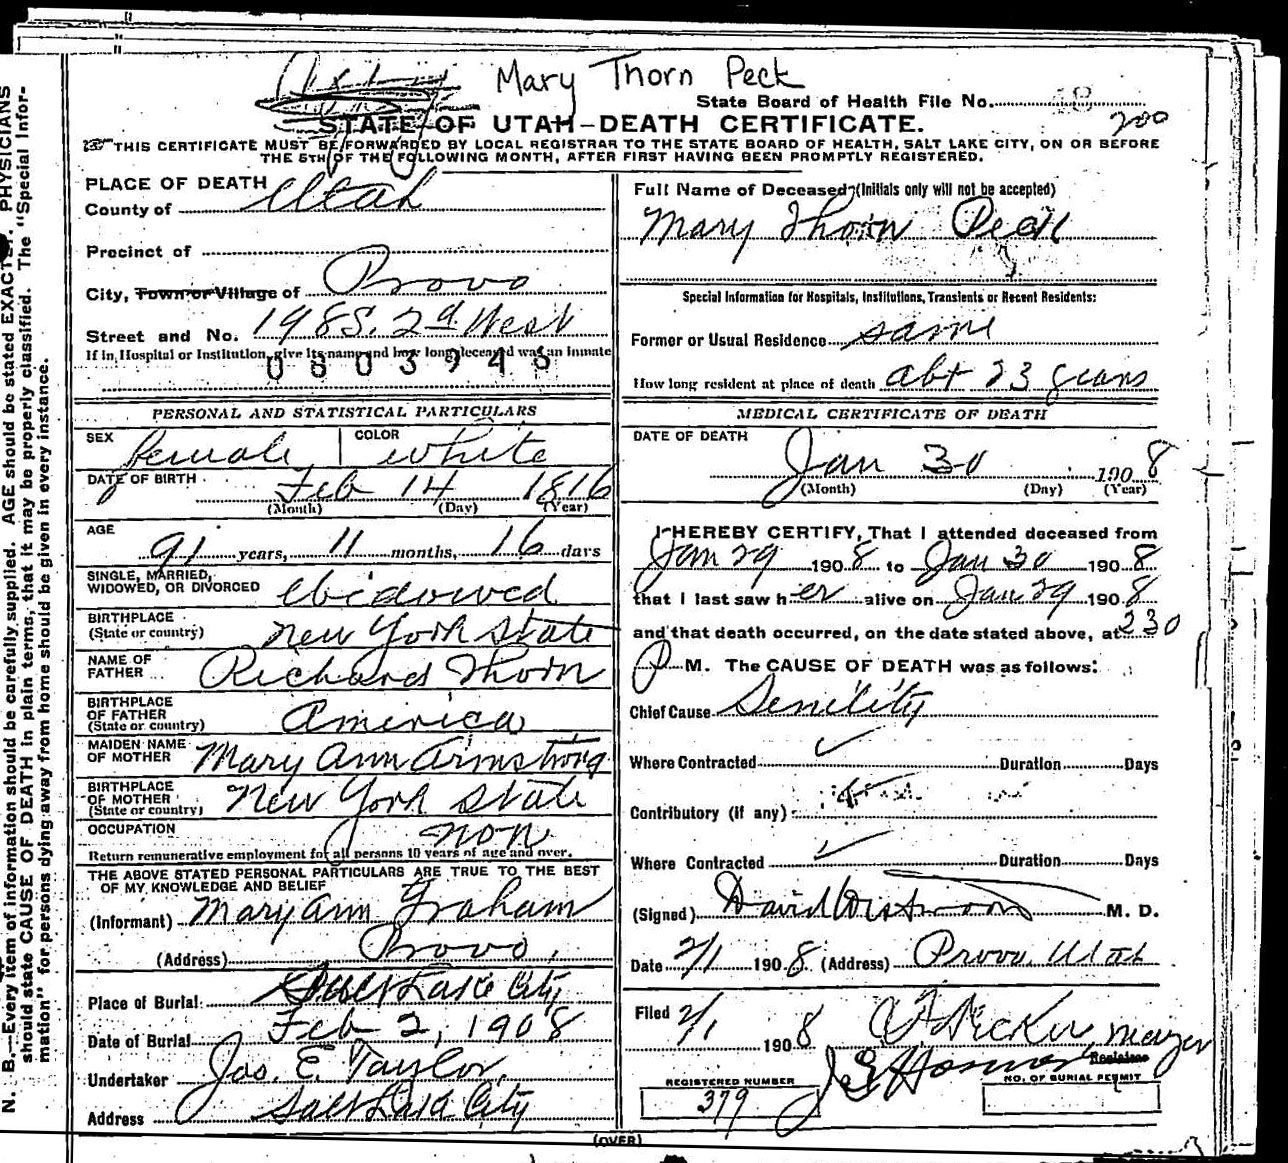 Mary Thorn Peck
State Board of Health File No. 48
200
STATE OF UTAH—DEATH CERTIFICATE.
THIS CERTIFICATE MUST BE FORWARDED BY LOCAL REGISTRAR TO THE STATE BOARD OF HEALTH, SALT LAKE CITY, ON OR BEFORE
THE 5TH OF THE FOLLOWING MONTH, AFTER FIRST HAVING BEEN PROMPTLY REGISTERED.
PLACE OF DEATH
County of Utah
Precinct of
City, Town or Village of Provo
Street and No. 198 S. 2d West
If in Hospital or Institution, give its name and how long deceased was an inmate
0603946
PERSONAL AND STATISTICAL PARTICULARS
SEX female COLOR white
DATE OF BIRTH Feb 14 1816
(Month) (Day) (Year)
AGE 91 years, 11 months, 16 days
SINGLE, MARRIED,
WIDOWED, OR DIVORCED Widowed
BIRTHPLACE
(State or country) New York State
NAME OF
FATHER Richard Thorn
BIRTHPLACE
OF FATHER
(State or country) America
MAIDEN NAME
OF MOTHER Mary Ann Armstrong
BIRTHPLACE
OF MOTHER
(State or country) New York State
OCCUPATION non
Return remunerative employment for all persons 10 years of age and over.
THE ABOVE STATED PERSONAL PARTICULARS ARE TRUE TO THE BEST
OF MY KNOWLEDGE AND BELIEF
(Informant) Mary Ann Graham
(Address) Provo,
Place of Burial Salt Lake City
Date of Burial Feb 2, 1908
Undertaker Jos. E. Taylor,
Address Salt Lake City
Full Name of Deceased (Initials only will not be accepted)
Mary Thorn Peck
Special Information for Hospitals, Institutions, Transients or Recent Residents:
Former or Usual Residence same
How long resident at place of death abt 23 years
MEDICAL CERTIFICATE OF DEATH
DATE OF DEATH
Jan 30 1908
(Month) (Day) (Year)
I HEREBY CERTIFY, That I attended deceased from
Jan 29 1908 to Jan 30 1908
that I last saw her alive on Jan 29 1908
and that death occurred, on the date stated above, at 230
P M. The CAUSE OF DEATH was as follows:
Chief Cause Senility
Where Contracted Duration Days
Contributory (if any)
Where Contracted Duration Days
(Signed) David Westwood M. D.
Date 2/1 1908 (Address) Provo, Utah
Filed 2/1 1908 Decker, Mayor
Registrar
REGISTERED NUMBER
379
NO. OF BURIAL PERMIT
(OVER)
N. B.—Every item of information should be carefully supplied. AGE should be stated EXACTLY. PHYSICIANS
should state CAUSE OF DEATH in plain terms, that it may be properly classified. The "Special Infor-
mation" for persons dying away from home should be given in every instance.